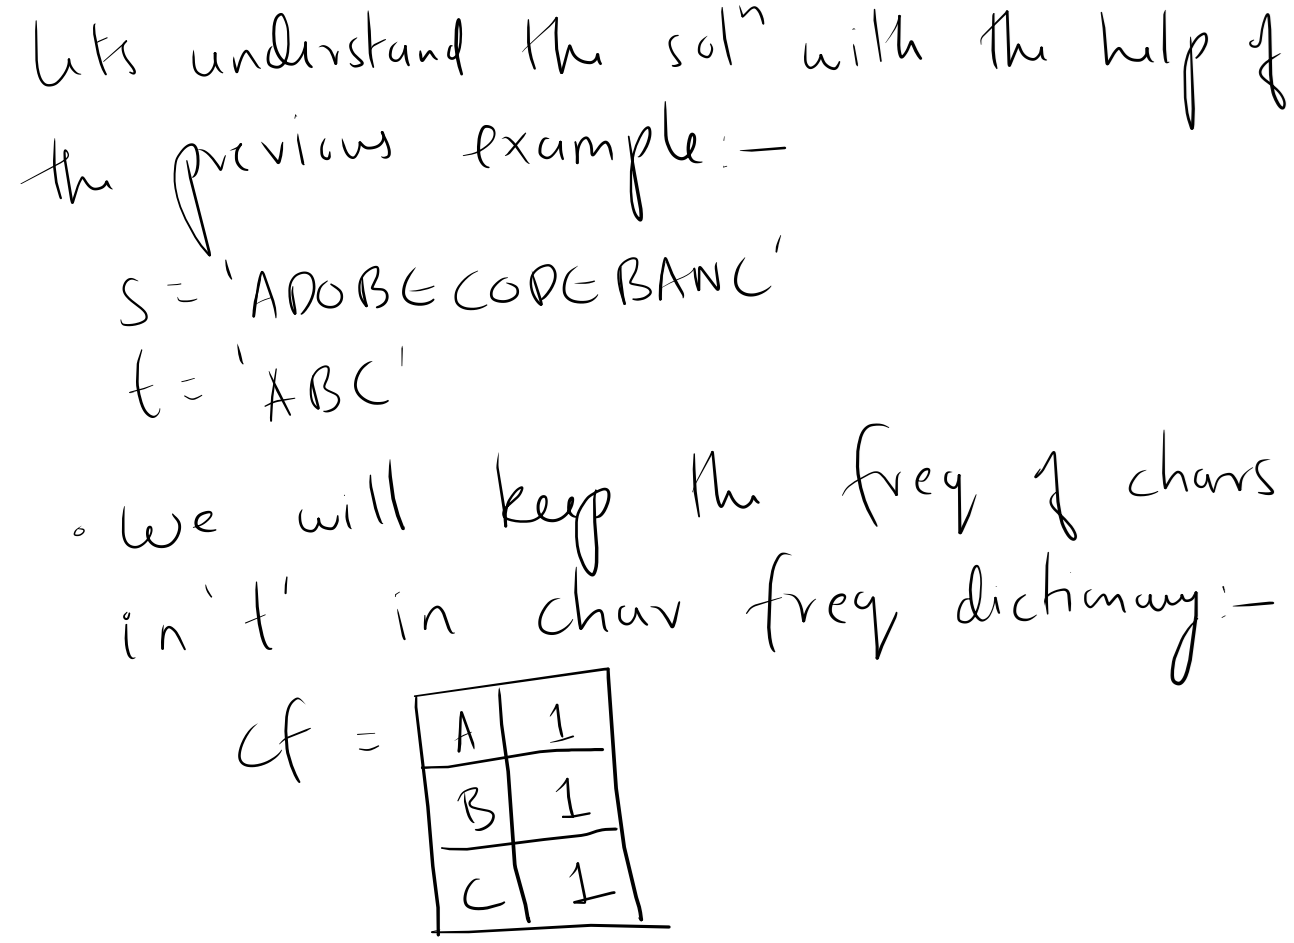 Lets understand the solⁿ with the help of
the previous example:-
s = 'ADOBECODEBANC'
t = 'ABC'
• We will keep the freq of chars
in 't' in char freq dictionary:-
cf =
A 1
B 1
C 1